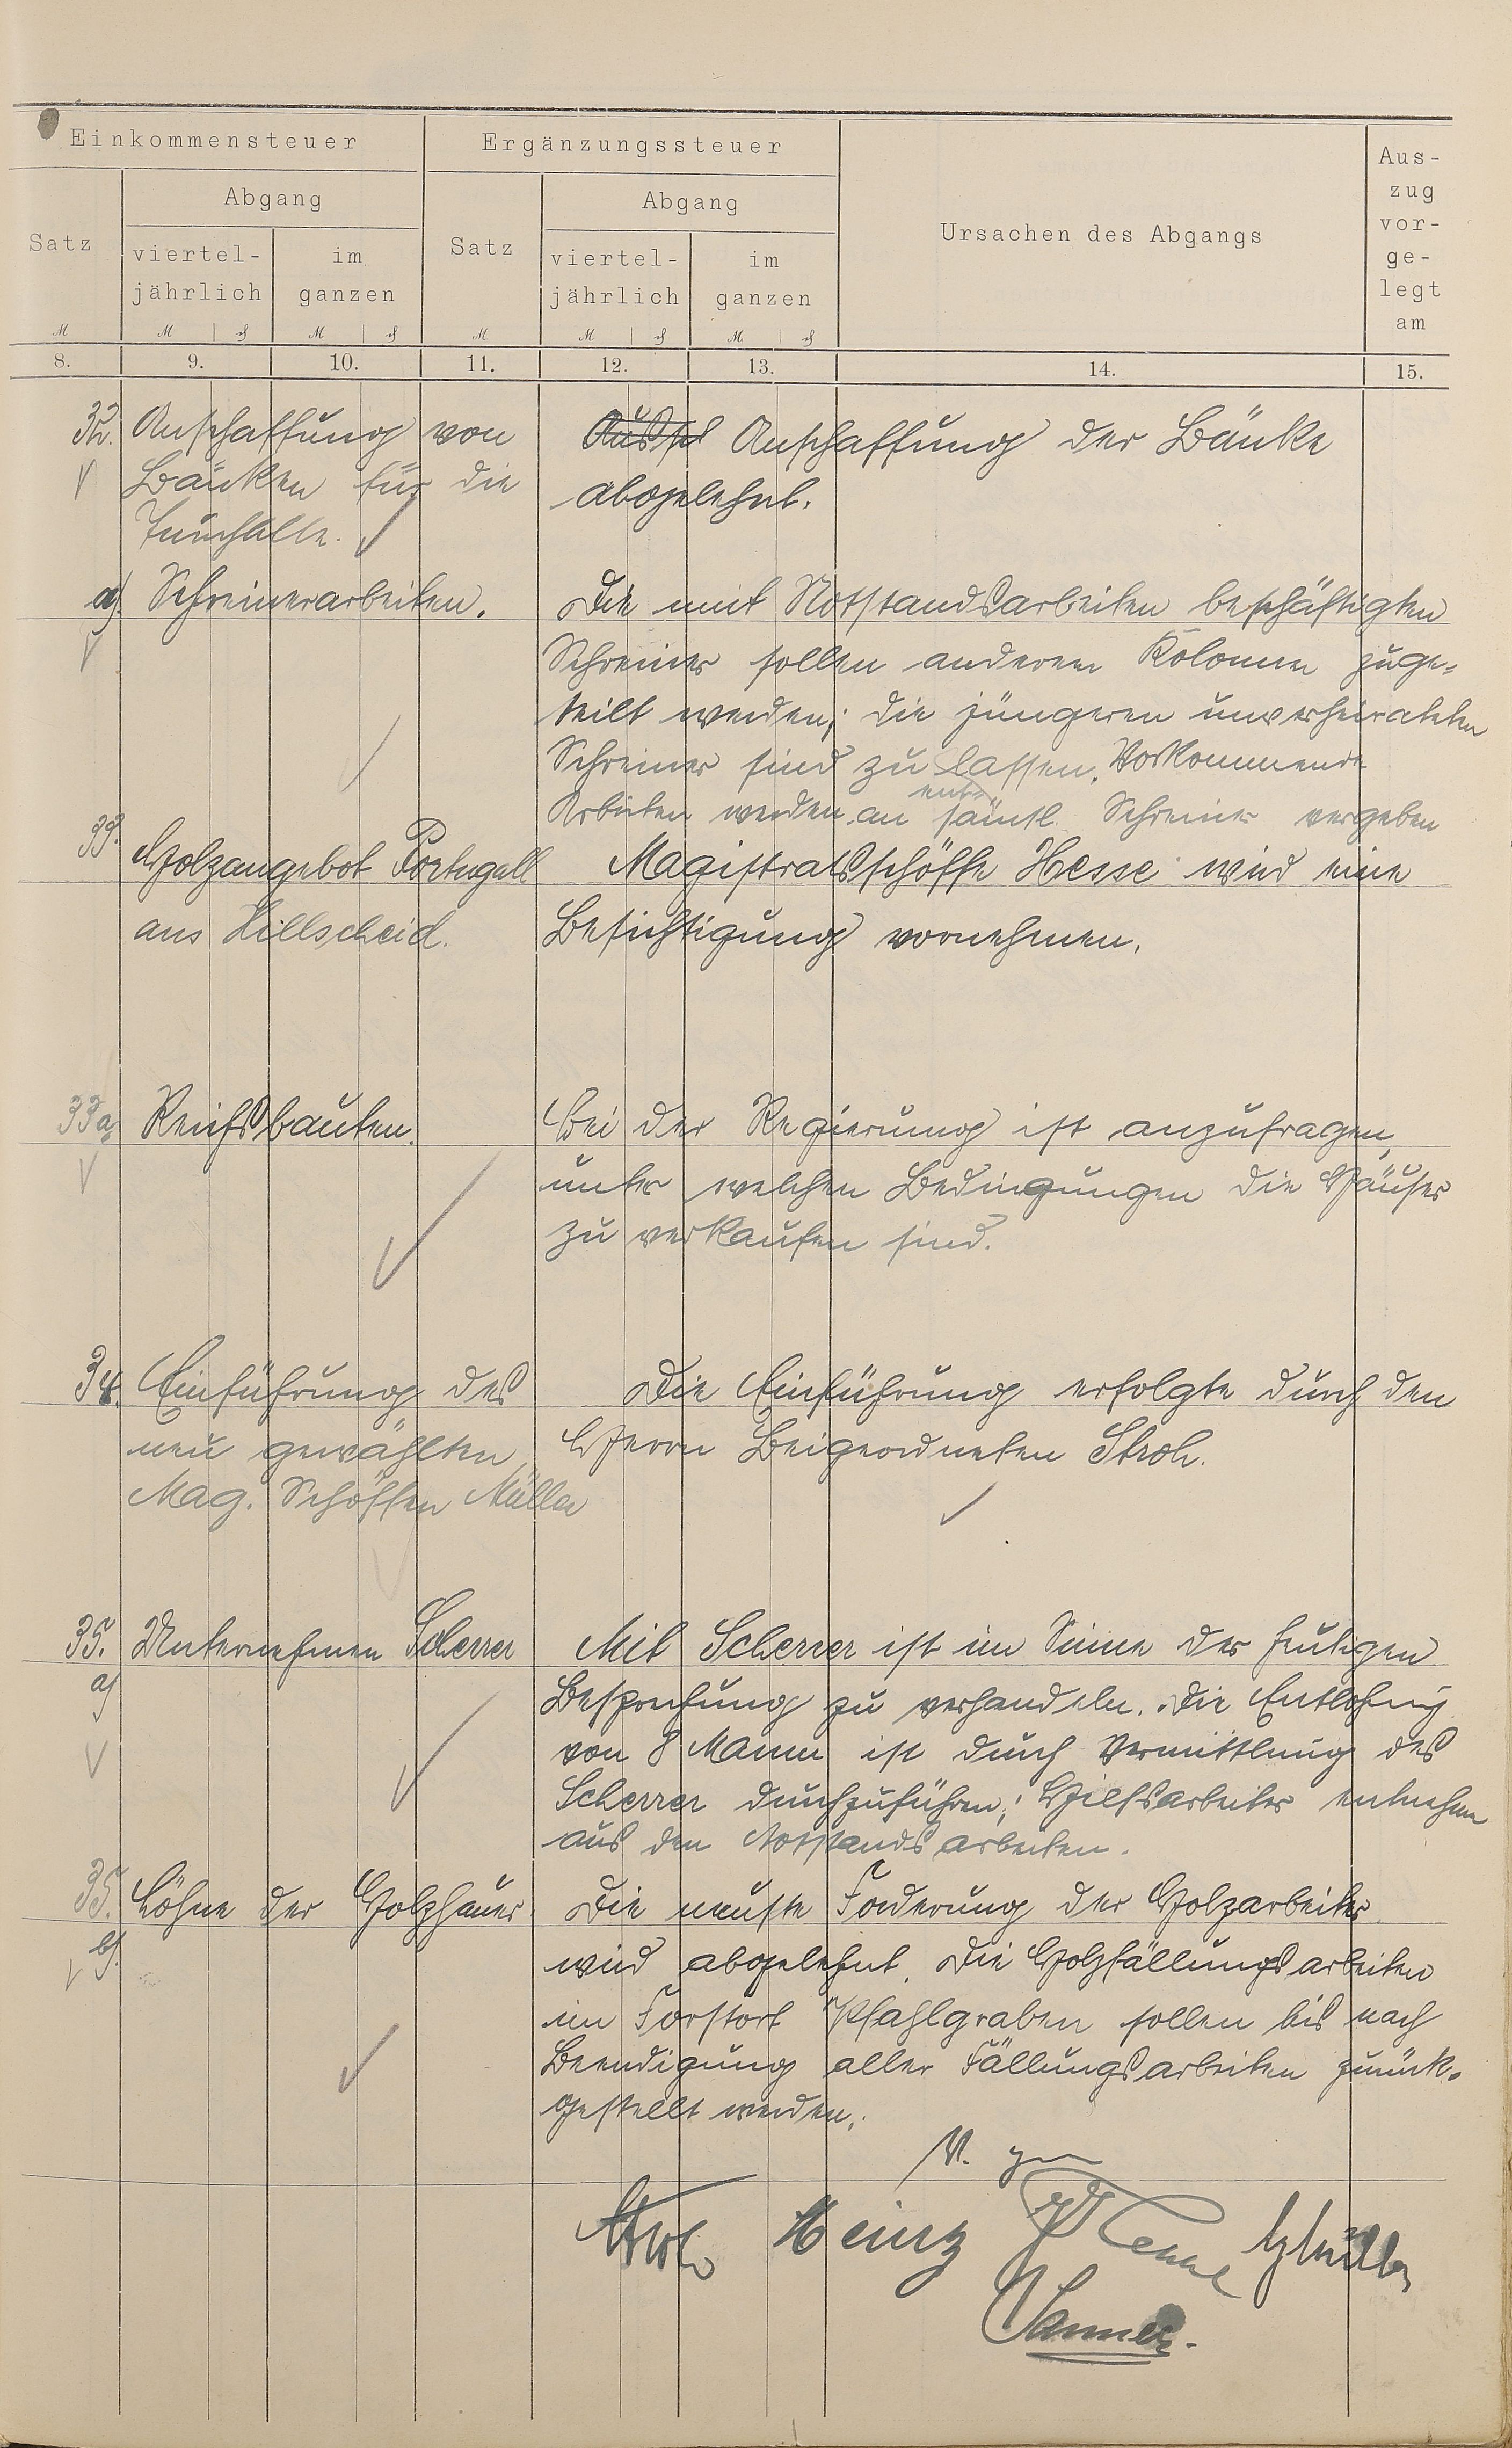 Einkommensteuer
Ergänzungssteuer
Ursachen des Abgangs
Aus-
zug
vor-
ge-
legt
am
Satz
Abgang
Satz
Abgang
viertel-
jährlich
im
ganzen
viertel-
jährlich
im
ganzen
M
M
₰
M
₰
M
M
₰
M
₰
8.
9.
10.
11.
12.
13.
14.
15.
32. Anschaffung von
Bänken für die
Turnhalle.
Anschaffung der Bänke
abgelehnt.
a) Schreinerarbeiten.
Die mit Notstandsarbeiten beschäftigten
Schreiner sollen anderen Kolonnen zuge-
teilt werden; die jüngeren unverheirateten
Schreiner sind zu entlassen. Vorkommende
Arbeiten werden an sämtl. Schreiner vergeben
33. Holzangebot Portugall
aus Hillscheid.
Magistratsschöffe Hesse wird eine
Besichtigung vornehmen.
33a Reichsbauten.
Bei der Regierung ist anzufragen,
unter welchen Bedingungen die Häuser
zu verkaufen sind.
34. Einführung des
neu gewählten
Mag. Schöffen Müller
Die Einführung erfolgte durch den
Herrn Beigeordneten Stroh.
35. Unternehmen Scherrer
a)
Mit Scherrer ist im Sinne der heutigen
Besprechung zu verhandeln. Die Entlohng
von 8 Mann ist durch Vermittlung des
Scherrer durchzuführen; Hilfsarbeiter entnehmen
aus den Notstandsarbeiten.
35. Löhne der Holzhauer
b)
Die neuste Forderung der Holzarbeiter
wird abgelehnt. Die Holzfällungsarbeiten
im Forstort Pfahlgraben sollen bis nach
Beendigung aller Fällungsarbeiten zurück-
gestellt werden.
Stroh Heinz Müller